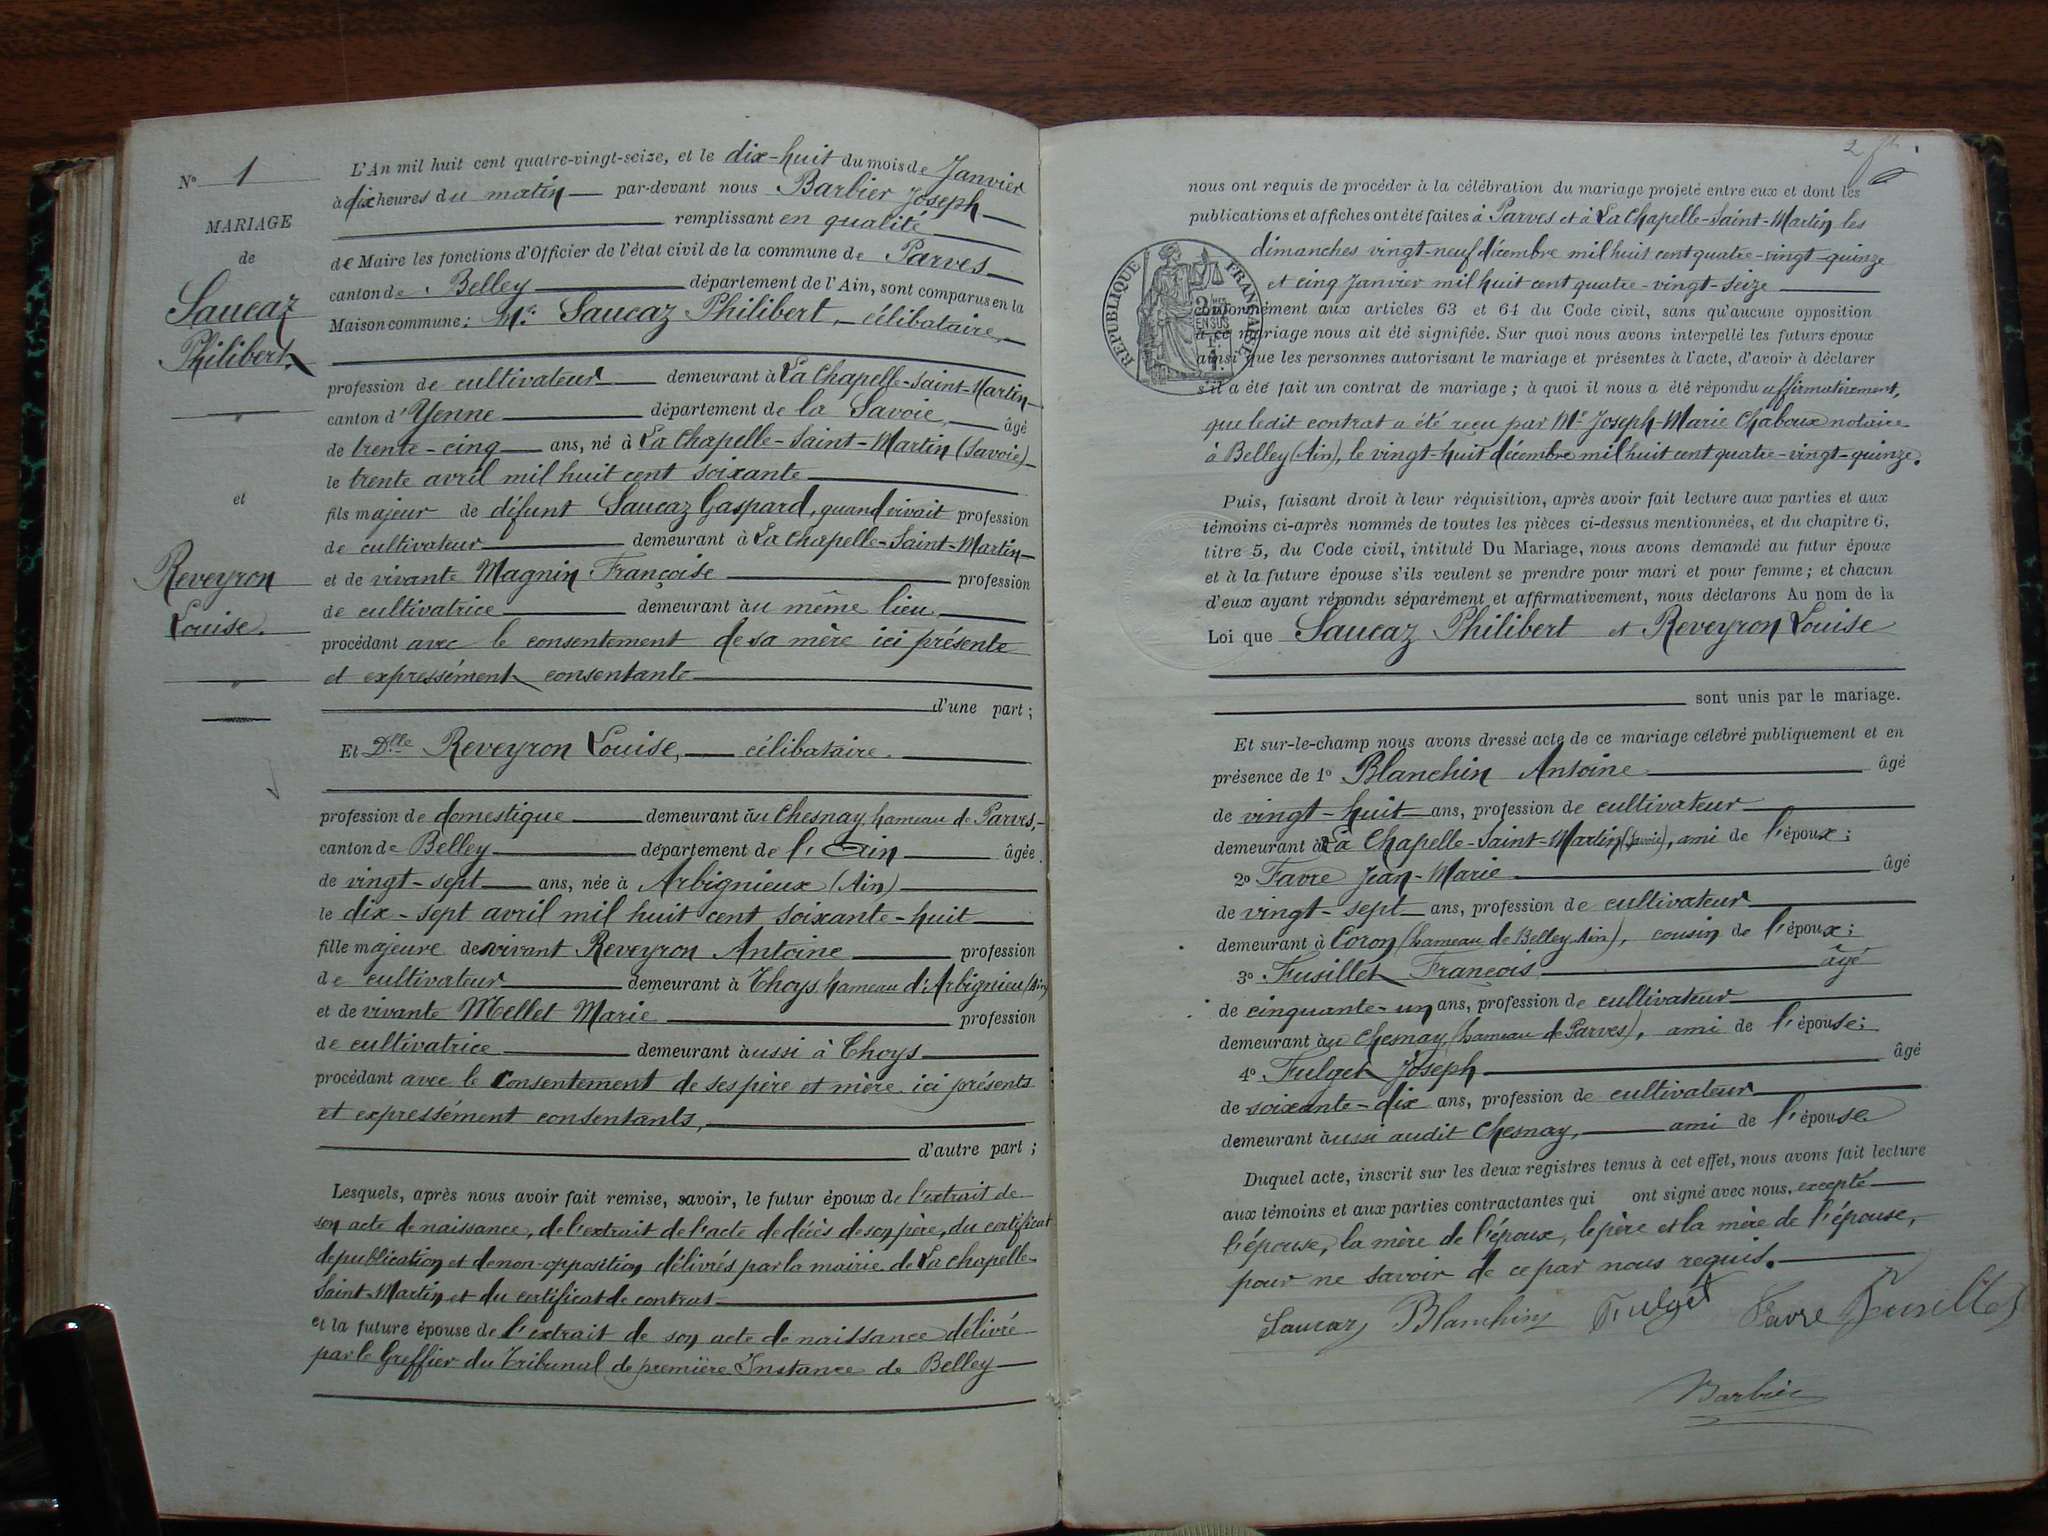 N° 1
MARIAGE
de
Saucaz
Philibert
et
Reveyron
Louise.
L'An mil huit cent quatre-vingt-seize, et le dix-huit du mois de Janvier
à dix heures du matin par-devant nous Barbier Joseph
remplissant en qualité
de Maire les fonctions d'Officier de l'état civil de la commune de Parves
canton de Belley département de l'Ain, sont comparus en la
Maison commune: Mr. Saucaz Philibert, célibataire,
profession de cultivateur demeurant à La Chapelle-Saint-Martin
canton d'Yenne département de la Savoie, âgé
de trente-cinq ans, né à La Chapelle-Saint-Martin (Savoie)
le trente avril mil huit cent soixante
fils majeur de défunt Saucaz Gaspard, quand vivait profession
de cultivateur demeurant à La Chapelle-Saint-Martin
et de vivante Magnin Françoise profession
de cultivatrice demeurant àu même lieu,
procédant avec le consentement de sa mère ici présente
et expressément consentante
d'une part;
Et Dlle Reveyron Louise, célibataire.
profession de domestique demeurant àu Chesnay, hameau de Parves,
canton de Belley département de l'Ain âgée
de vingt-sept ans, née à Arbignieux (Ain)
le dix-sept avril mil huit cent soixante-huit
fille majeure de vivant Reveyron Antoine profession
de cultivateur demeurant à Thoys hameau d'Arbignieu (Ain)
et de vivante Mellet Marie profession
de cultivatrice demeurant àussi à Thoys
procédant avec le consentement de ses père et mère ici présents
et expressément consentants,
d'autre part;
Lesquels, après nous avoir fait remise, savoir, le futur époux de l'extrait de
son acte de naissance, de l'extrait de l'acte de décès de son père, du certificat
de publication et de non-opposition délivrés par la mairie de La Chapelle-
Saint-Martin et du certificat de contrat
et la future épouse de l'extrait de son acte de naissance délivré
par le Greffier du Tribunal de première Instance de Belley
2
nous ont requis de procéder à la célébration du mariage projeté entre eux et dont les
publications et affiches ont été faites à Parves et à La Chapelle-Saint-Martin les
dimanches vingt-neuf décembre mil huit cent quatre-vingt-quinze
et cinq Janvier mil huit cent quatre-vingt-seize
RÉPUBLIQUE FRANÇAISE
conformément aux articles 63 et 64 du Code civil, sans qu'aucune opposition
à ce mariage nous ait été signifiée. Sur quoi nous avons interpellé les futurs époux
ainsi que les personnes autorisant le mariage et présentes à l'acte, d'avoir à déclarer
s'il a été fait un contrat de mariage; à quoi il nous a été répondu affirmativement,
que ledit contrat a été reçu par Me Joseph-Marie Chaboux notaire
à Belley (Ain), le vingt-huit décembre mil huit cent quatre-vingt-quinze.
Puis, faisant droit à leur réquisition, après avoir fait lecture aux parties et aux
témoins ci-après nommés de toutes les pièces ci-dessus mentionnées, et du chapitre 6,
titre 5, du Code civil, intitulé Du Mariage, nous avons demandé au futur époux
et à la future épouse s'ils veulent se prendre pour mari et pour femme; et chacun
d'eux ayant répondu séparément et affirmativement, nous déclarons Au nom de la
Loi que Saucaz Philibert et Reveyron Louise
sont unis par le mariage.
Et sur-le-champ nous avons dressé acte de ce mariage célébré publiquement et en
présence de 1° Blanchin Antoine âgé
de vingt-huit ans, profession de cultivateur
demeurant à La Chapelle-Saint-Martin (Savoie), ami de l'époux;
2° Favre Jean-Marie âgé
de vingt-sept ans, profession de cultivateur
demeurant à Coron (hameau de Belley, Ain), cousin de l'époux;
3° Fusillet François âgé
de cinquante-un ans, profession de cultivateur
demeurant àu Chesnay, (hameau de Parves), ami de l'épouse;
4° Fulget Joseph âgé
de soixante-dix ans, profession de cultivateur
demeurant àussi audit Chesnay, ami de l'épouse
Duquel acte, inscrit sur les deux registres tenus à cet effet, nous avons fait lecture
aux témoins et aux parties contractantes qui ont signé avec nous, excepté
l'épouse, la mère de l'époux, le père et la mère de l'épouse,
pour ne savoir de ce par nous requis.
Saucaz Blanchin Fulget Favre Fusillet
Barbier